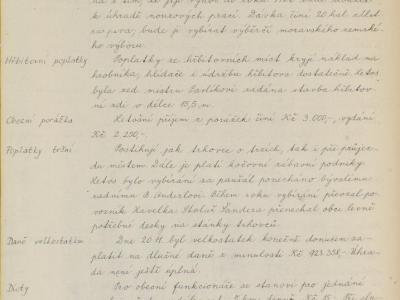 k úhradě nouzových prací. Dávka činí 20 hal z litru
piva; bude ji vybírat výběrčí moravského zemské-
ho výboru.
Hřbitovní poplatky Poplatky ze hřbitovních míst kryjí náklad na
hrobníka, hlídače i údržbu hřbitova dostatečně. Letos
byla zed. mistru Karlíkovi zadána stavba hřbitov-
ní zdi v délce 15,5 m.
Obecní porážka Letošní příjem z porážek činí Kč 3.000,-, vydání
Kč 2.250,-.
Poplatky tržní Postihují jak trhovce o trzích, tak i při průjez-
du městem. Dále je platí kočovní zábavní podniky.
Letos bylo vybírání za paušál ponecháno bývalému
radnímu B. Anderlovi. Během roku vybírání převzal po-
vozník Havelka. Stolař Sandera přenechal obci levně
potřebné desky na stánky trhovců.
Daně velkostatku Dne 20.11. byl velkostatek konečně donucen za-
platit na dlužné daně z minulosti Kč 923.358,-. Úhra-
da není ještě úplná.
Diety Pro obecní funkcionáře se stanoví pro jednání